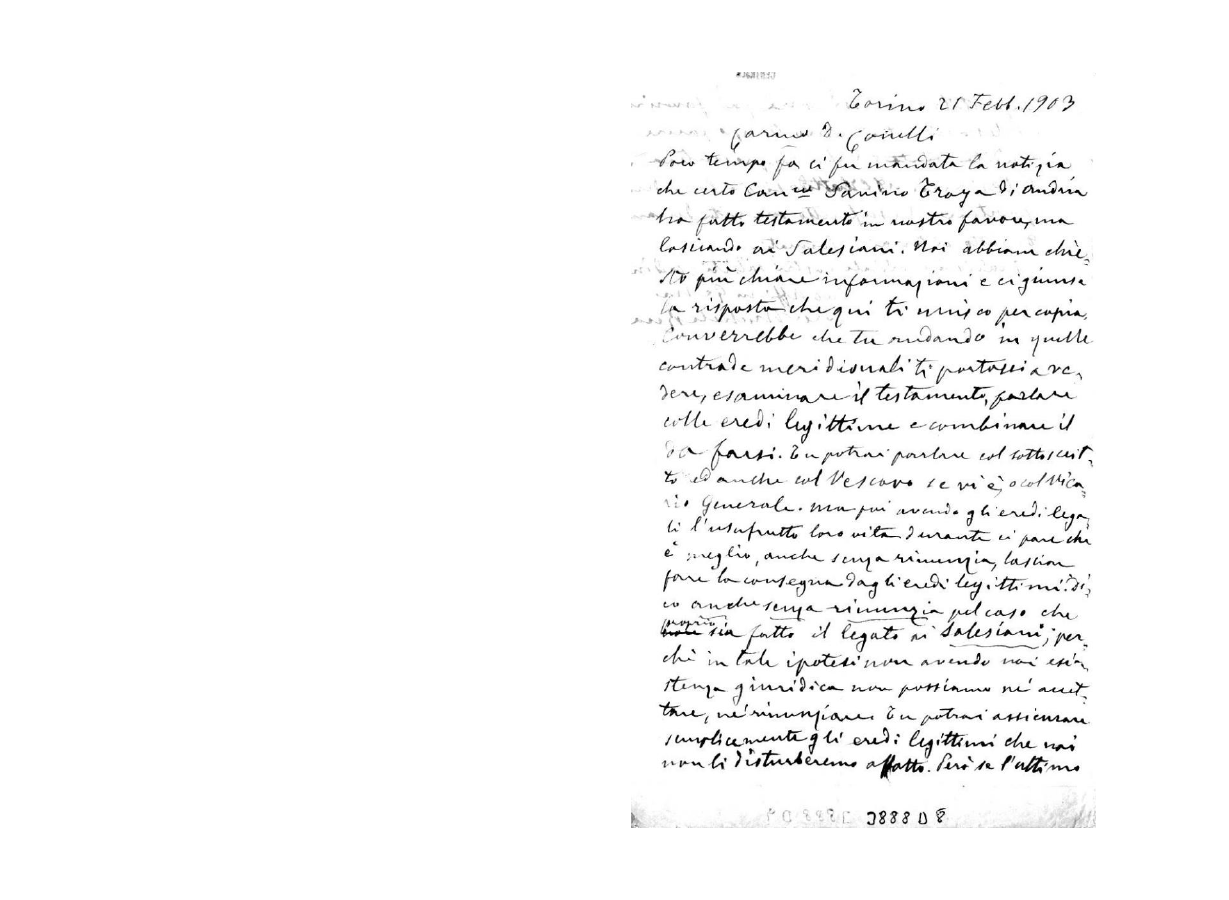 Torino 21 Febb. 1903
Carmo D. Conelli
Poco tempo fa ci fu mandata la notizia
che certo Can.co Sanino Troya di Andria
ha fatto testamento in nostro favore, ma
lasciando ai Salesiani. Noi abbiam chie-
sto più chiare informazioni e ci giunse
la risposta che qui ti unisco per copia.
Converrebbe che tu andando in quelle
contrade meridionali ti portassi a ve-
dere, esaminare il testamento, parlare
colle eredi legittime e combinare il
da farsi. Tu potrai parlare col sottoscrit-
to ed anche col Vescovo se vi è, o col Vica-
rio Generale. Ma poi avendo gli eredi lega-
li l'usufrutto loro vita durante ci pare che
è meglio, anche senza rinunzia, lasciar
fare la consegna dagli eredi legittimi. Di-
co anche senza rinunzia pel caso che
proprio sia fatto il legato ai Salesiani; per-
chè in tale ipotesi non avendo noi esi-
stenza giuridica non possiamo nè accet-
tare, nè rinunziare. Tu potrai assicurare
semplicemente gli eredi legittimi che noi
non li disturberemo affatto. Però se l'ultimo